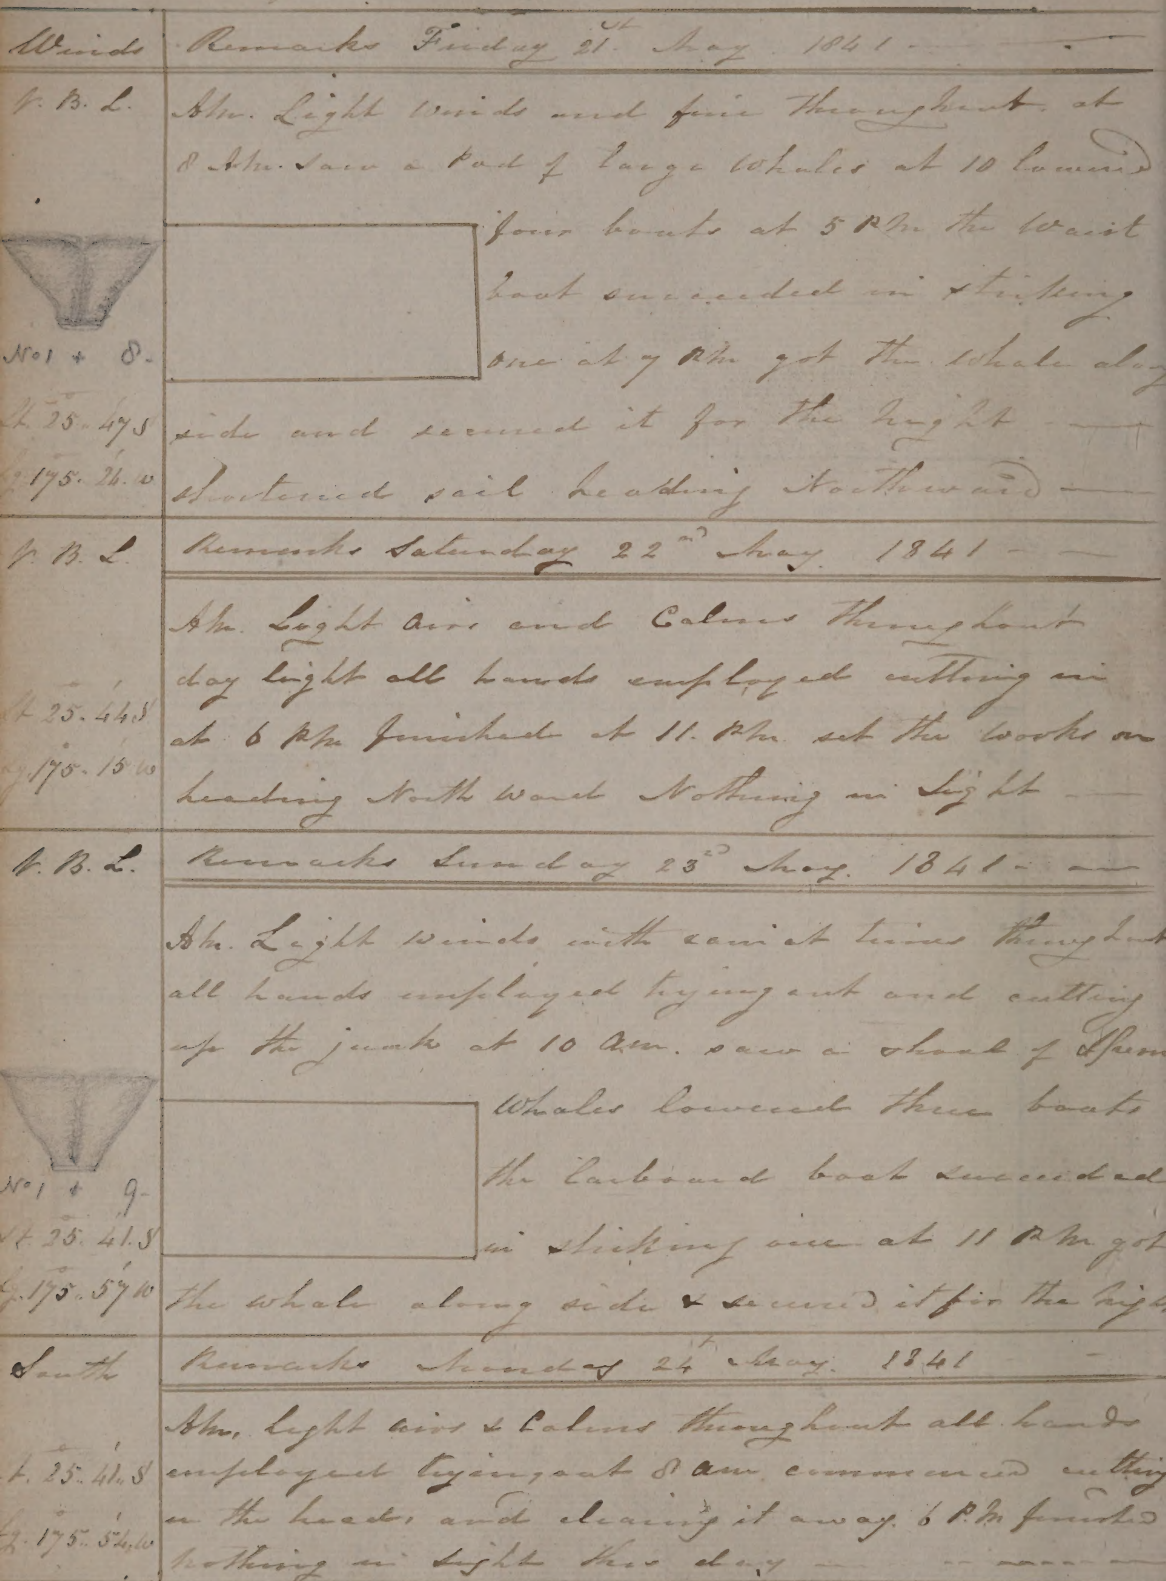 Winds Remarks Friday 21st May 1841
V. B. L. AM. Light winds and fine throughout. at
8 AM. saw a Pod of large Whales at 10 lowered
four boats at 5 PM the Waist
boat succeeded in striking
No 1 + 8 one at 7 PM got the whale along
Lt. 25. 47 S side and secured it for the night
Lg. 175. 26. W shortened sail heading Northward
V. B. L. Remarks Saturday 22nd May. 1841
AM. Light airs and Calms throughout
day light all hands employed cutting in
Lt. 25. 44 S at 6 PM finished at 11. PM set the works on
Lg. 175. 15 W heading North ward Nothing in Sight
V. B. L. Remarks Sunday 23rd May. 1841
AM. Light winds with rain at times throughout
all hands employed trying out and cutting
up the junk at 10 am. saw a shoal of Sperm
Whales lowered three boats
No 1 + 9 the Larboard boat succeeded
Lt. 25. 41. S in striking one at 11 PM got
Lg. 175. 57 W the whale along side & secured it for the nigh
South Remarks Monday 24th May. 1841
AM. Light airs & Calms throughout all hands
Lt. 25. 41. S employed trying out 8 am commenced cutting
in the head, and clearing it away. 6 P.M finished
Lg. 175. 54. W nothing in sight this day